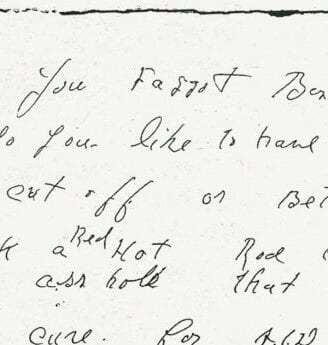 You Faggot
Do you like to have
cut off or
a Red Hot Rod
ass hole that
cure. for